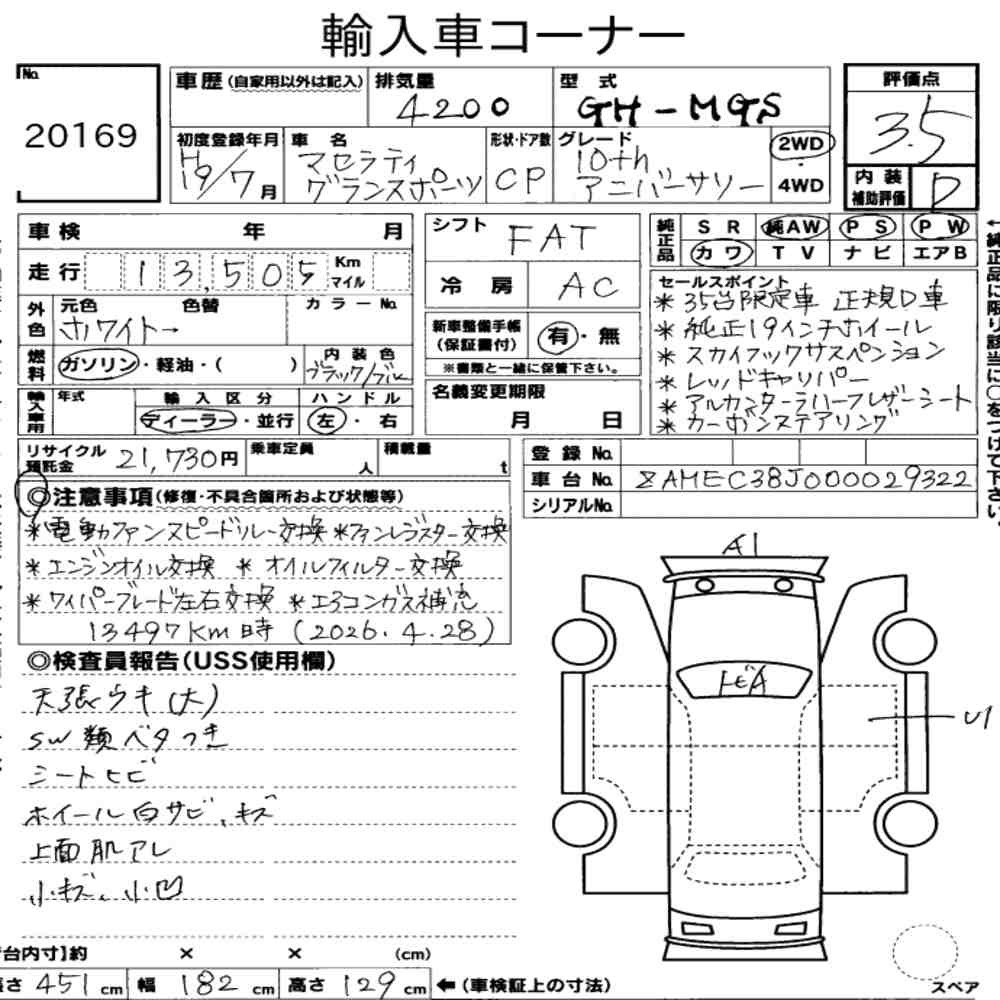 輸入車コーナー
No.
20169
車歴(自家用以外は記入)
排気量
4200
型式
GH-MGS
評価点
3.5
初度登録年月
H19/7月
車名
マセラティ
グランスポーツ
形状・ドア数
CP
グレード
10th
アニバーサリー
2WD
・
4WD
内装
補助評価
D
車検 年 月
走行 13,505 Km
マイル
シフト FAT
冷房 AC
純正品
SR 純AW PS PW
カワ TV ナビ エアB
←純正品に限り該当に○をつけて下さい。
外色
元色 色替 カラーNo.
ホワイト→
燃料
ガソリン・軽油・( )
内装色
ブラック/ブルー
新車整備手帳
(保証書付)
有・無
※書類と一緒に保管下さい。
名義変更期限
月 日
セールスポイント
* 35台限定車 正規D車
* 純正19インチホイール
* スカイフックサスペンション
* レッドキャリパー
* アルカンターラハーフレザーシート
* カーボンステアリング
輸入車用
年式
輸入区分
ディーラー・並行
ハンドル
左・右
リサイクル
預託金
21,730円
乗車定員
人
積載量
t
登録No.
車台No. ZAMEC38J000029322
シリアルNo.
◎注意事項(修復・不具合箇所および状態等)
*電動ファンスピードリレー交換 *ファンレジスター交換
*エンジンオイル交換 *オイルフィルター交換
*ワイパーブレード左右交換 *エアコンガス補充
13497Km時 (2026.4.28)
◎検査員報告(USS使用欄)
天張ウキ(大)
SW類ベタつき
シートヒビ
ホイール白サビ、キズ
上面肌アレ
小キズ、小凹
A1
トビA
U1
台内寸]約 × × (cm)
長さ 451cm 幅 182cm 高さ 129cm ←(車検証上の寸法)
スペア